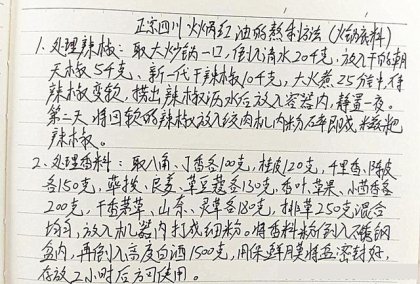 正宗四川火锅红油的熬制方法（火锅底料）
1. 处理辣椒：取大炒锅一口，倒入清水20千克，放入干的朝
天椒5千克、新一代干辣椒10千克，大火煮25分中，待
辣椒变软，捞出辣椒沥水后放入容器内，静置一夜。
第二天将回软的辣椒放入绞肉机内粉碎即成糍粑
辣椒。
2. 处理香料：取八角、丁香各100克，桂皮120克，千里香、陈皮
各150克，荜拨、良姜、草豆蔻各130克，香叶、草果、小茴香各
200克，千香茅草、山奈、灵草各180克，排草250克混合
均匀，放入机器内打成细粉。将香料粉倒入不锈钢
盆内，再倒入高度白酒1500克，用保鲜膜将盆密封好，
存放2小时后方可使用。